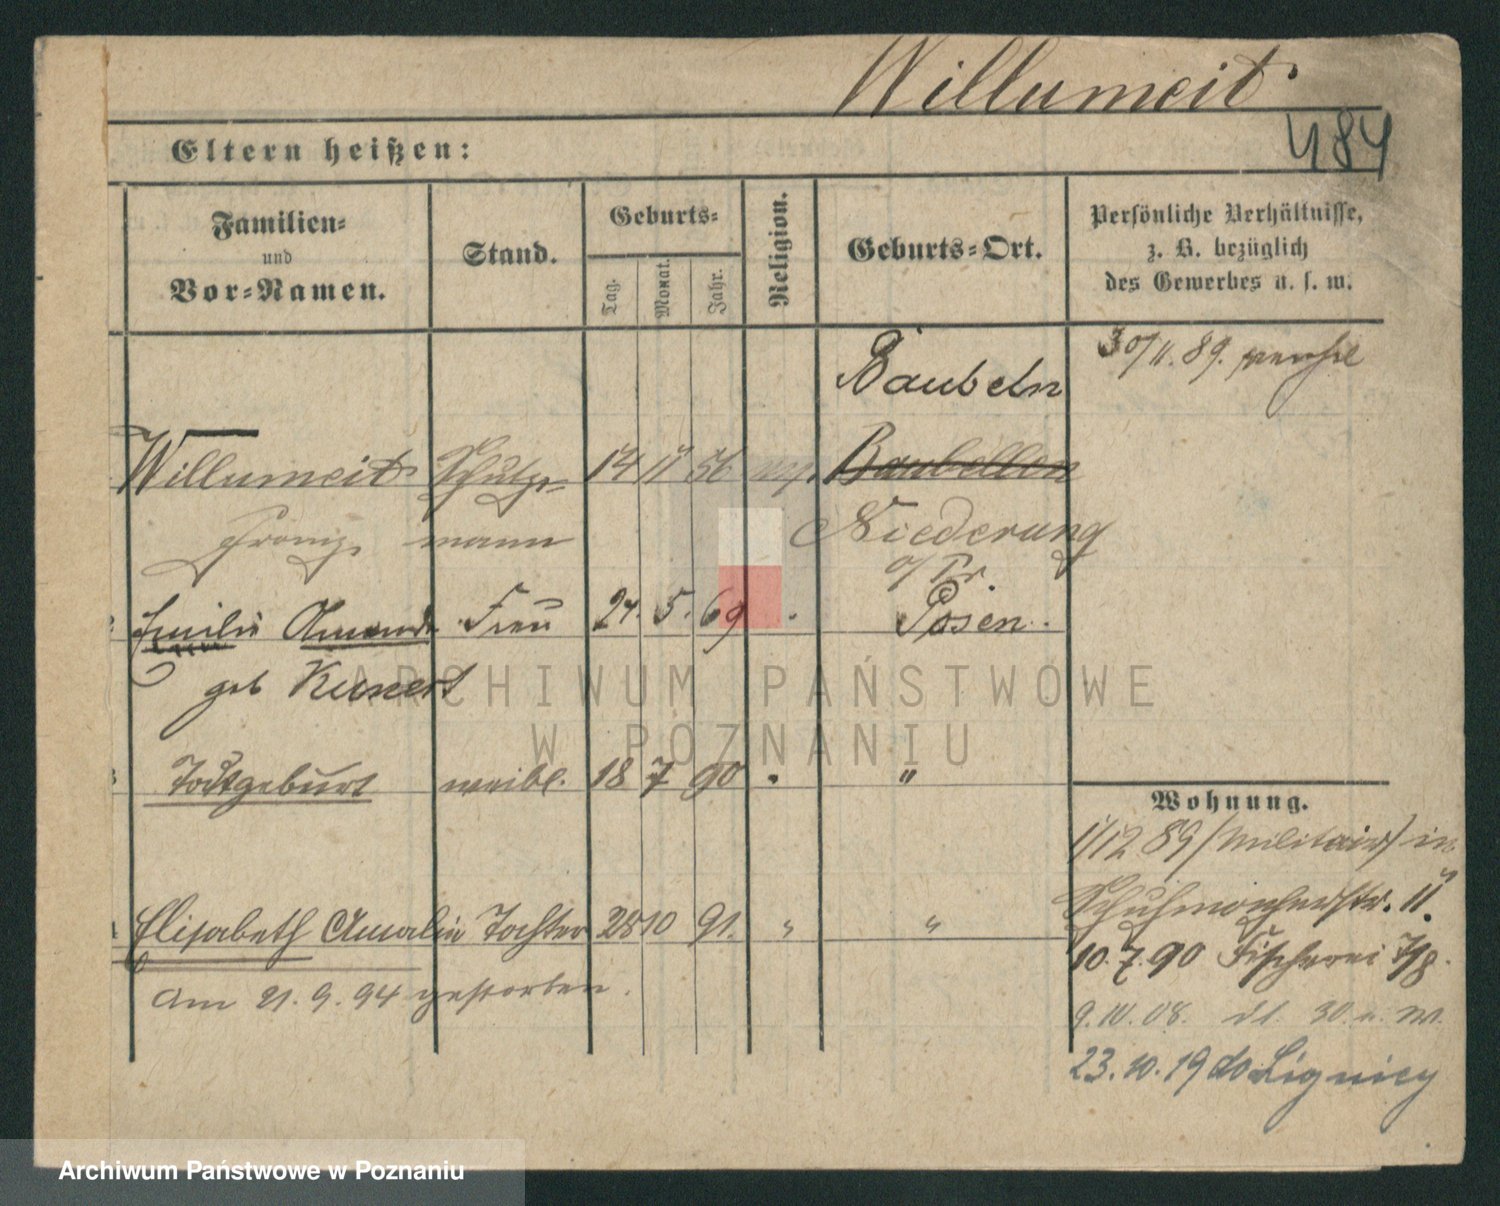 Willumeit
484
Eltern heißen:
Familien- und Vor-Namen.
Stand.
Geburts-
Tag.
Monat.
Jahr.
Religion.
Geburts-Ort.
Persönliche Verhältnisse,
z. B. bezüglich
des Gewerbes u. s. w.
Baubeln
30/11. 89.
Willumeit Schutz- 14 11 56 Baubellon
Franz mann Niederung
o/Pr.
2 Emilie Amanda Frau 24. 5. 69 Posen.
geb Kunert
3 Todtgeburt weibl. 18 7 90 "
Wohnung.
1/12 89 (Militair) in
Schuhmacherstr. 11.
4 Elisabeth Amalie Tochter 28 10 91. " "
10. 7. 90 Fischerei 7/8.
am 21. 9. 94 gestorben.
9. 10. 08. dt. 30.
23. 10. 19 do Lignicy
ARCHIWUM PAŃSTWOWE
W POZNANIU
Archiwum Państwowe w Poznaniu